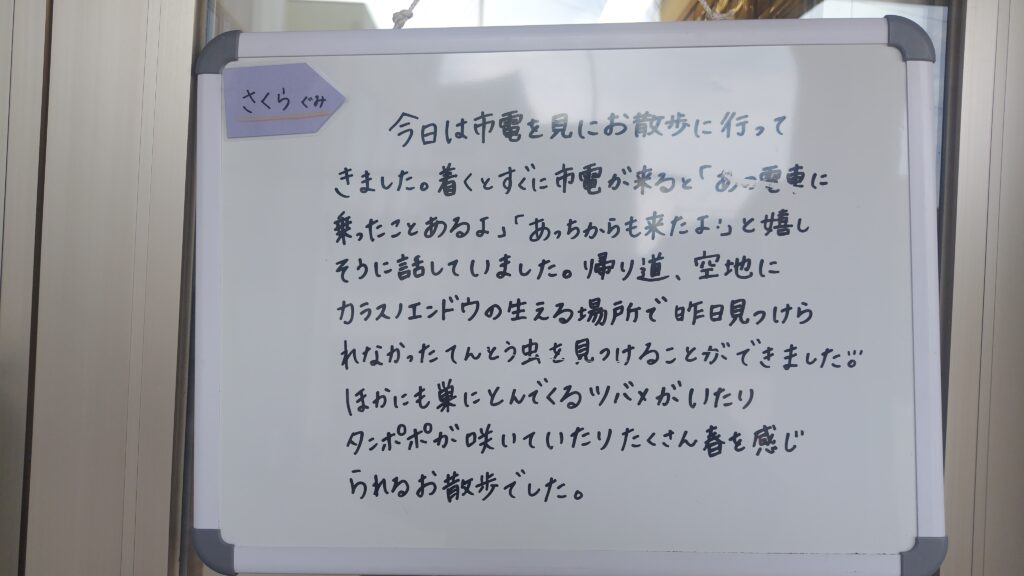 さくらぐみ
今日は市電を見にお散歩に行って
きました。着くとすぐに市電が来ると「あっ電車に
乗ったことあるよ」「あっちからも来たよ」と嬉し
そうに話していました。帰り道、空地に
カラスノエンドウの生える場所で昨日見つけら
れなかったてんとう虫を見つけることができました。
ほかにも巣にとんでくるツバメがいたり
タンポポが咲いていたりたくさん春を感じ
られるお散歩でした。